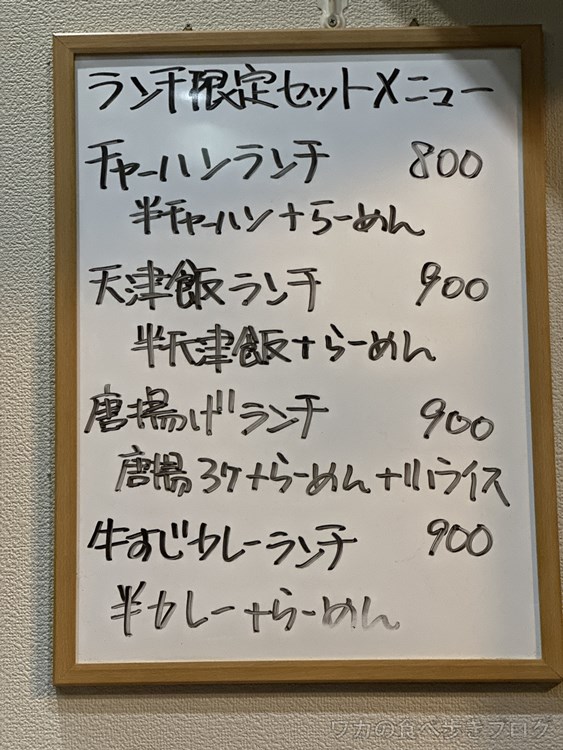 ランチ限定セットメニュー
チャーハンランチ 800
半チャーハン+らーめん
天津飯ランチ 900
半天津飯+らーめん
唐揚げランチ 900
唐揚3ケ+らーめん+小ライス
牛すじカレーランチ 900
半カレー+らーめん
ワカの食べ歩きブログ